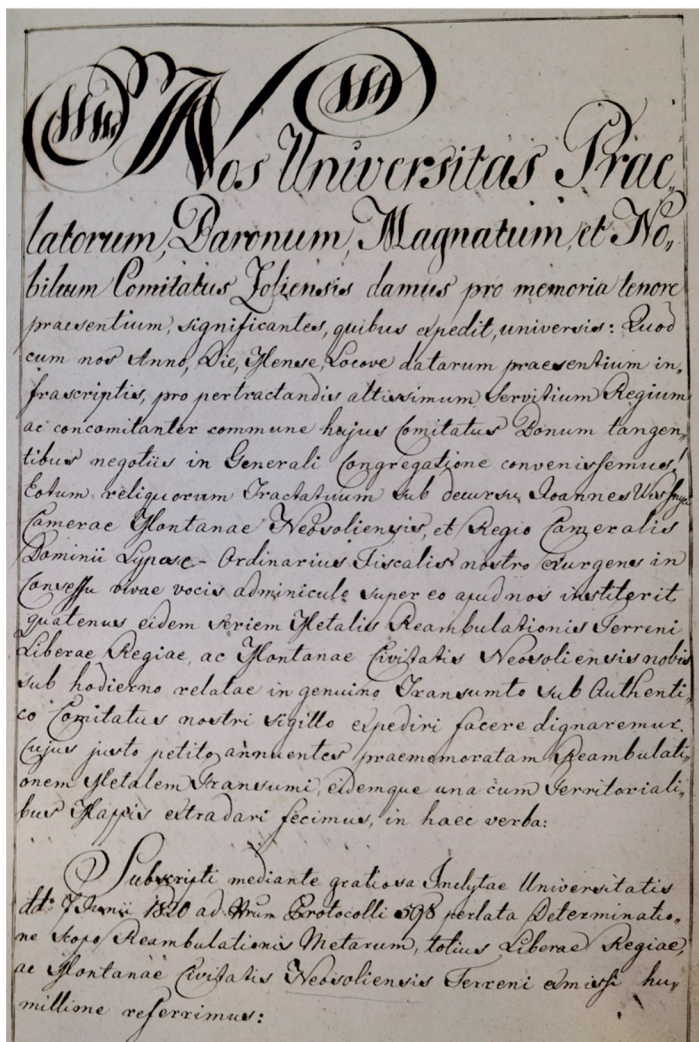 Nos Universitas Prae„
latorum, Baronum, Magnatum, et No„
bilium Comitatus Zoliensis damus pro memoria tenore
praesentium, significantes, quibus expedit, universis: Quod
cum nos Anno, Die, Mense, Locove datarum praesentium in„
frascriptis, pro pertractandis altissimum Servitium Regium
ac concomitanter commune hujus Comitatus Bonum tangen„
tibus negotiis in Generali Congregatione convenissemus,
Eotum reliquorum Tractatuum sub decursu Joannes
Camerae Montanae Neosoliensis, et Regio Cameralis
Dominii Lypsc - Ordinarius Fiscalis nostro exurgens in
Consessu vivae vocis adminiculo super eo apud nos institerit
quatenus eidem seriem Metalis Reambulationis Terreni
Liberae Regiae, ac Montanae Civitatis Neosoliensis nobis
sub hodierno relatae in genuino Transumto sub Authenti„
co Comitatus nostri sigillo expediri facere dignaremur.
Cujus justo petito annuentes praememoratam Reambulati„
onem Metalem transumi, eidemque una cum Territoriali„
bus Mappis extradari fecimus, in haec verba:
Subscripti mediante gratiosa Inclytae Universitatis
ddto 7 Junii 1820 ad Nrum Protocolli 598 perlata Determinatio„
ne scopo Reambulationis Metarum, totius Liberae Regiae,
ac Montanae Civitatis Neosoliensis Terreni emissi hu„
millime referrimus: